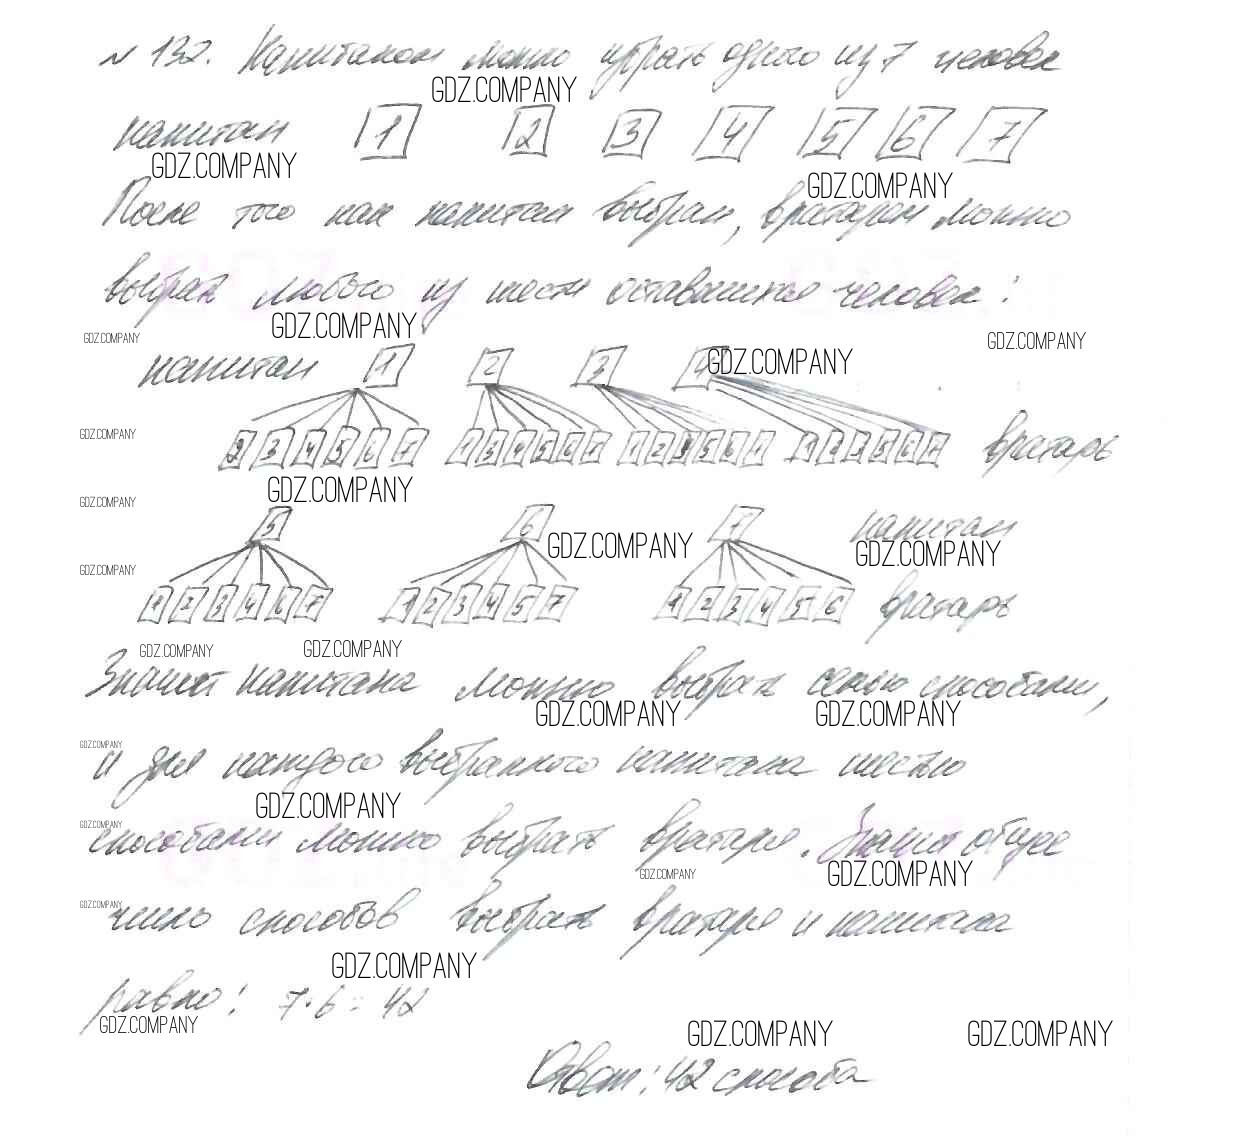 № 132. Капитаном можно убрать одного из 7 человек
GDZ.COMPANY
капитан 1 2 3 4 5 6 7
GDZ.COMPANY GDZ.COMPANY
После того как капитан выбран, вратарем можно
выбрать любого из шести оставшихся человек:
GDZ.COMPANY GDZ.COMPANY GDZ.COMPANY
капитан 1 2 3 4 GDZ.COMPANY
GDZ.COMPANY 2 3 4 5 6 7 1 3 4 5 6 7 1 2 3 5 6 7 1 2 3 5 6 7 вратарь
GDZ.COMPANY GDZ.COMPANY
5 6 7 капитан
GDZ.COMPANY GDZ.COMPANY GDZ.COMPANY
1 2 3 4 6 7 1 2 3 4 5 7 1 2 3 4 5 6 вратарь
GDZ.COMPANY GDZ.COMPANY
Значит капитана можно выбрать семью способами,
GDZ.COMPANY GDZ.COMPANY
GDZ.COMPANY
и для каждого выбранного капитана шестью
GDZ.COMPANY
GDZ.COMPANY
способами можно выбрать вратаря. Значит общее
GDZ.COMPANY GDZ.COMPANY
GDZ.COMPANY
число способов выбрать вратаря и капитана
GDZ.COMPANY
равно: 7·6=42
GDZ.COMPANY GDZ.COMPANY GDZ.COMPANY
Ответ: 42 способа